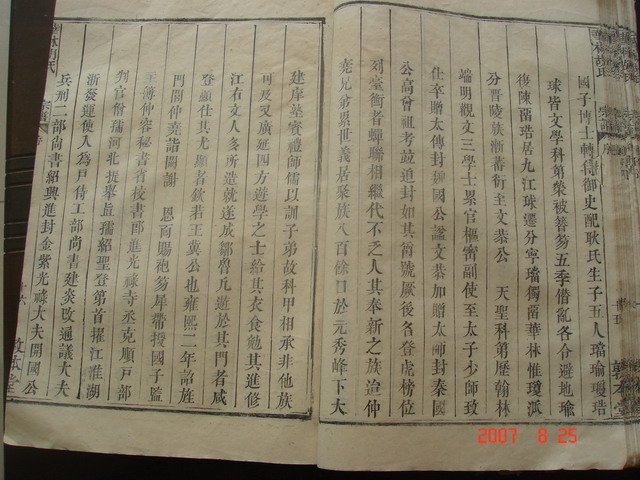 國子博士轉侍御史配耿氏生子五人璫瑜璦琩
球皆文學科第榮被簪笏五季僭亂各合避地瑜
復陳琩居九江球遷分寧璫獨畱華林惟璦派
分晉陵族漸蕃衍至文恭公 天聖科第歷翰林
端明觀文三學士累官樞密副使至太子少師致
仕卒贈太傅封柱國公謚文恭加贈太師封秦國
公高會祖考竝追封如其爵號厥後名登虎榜位
列臺衡者蟬聯相繼代不乏人其奉新之族治仲
堯兄弟累世義居聚族八百餘口於元秀峰下大
建庠塾賓禮師儒以訓子弟故科甲相承非他族
可及又廣延四方遊學之士給其衣食勉其進修
江右文人多所造就遂成鄒魯凡遊於其門者咸
登顯仕其尤顯者欽若王冀公也雍熙二年詔旌
門閭仲堯詣闕謝 恩 賜袍笏犀帶授國子監
主簿仲容秘書省校書郎進光祿寺丞克順戶部
判官份孺河北提舉直孺紹聖登第首擢江淮湖
浙發運使入為戶侍工部尚書建炎改通議大夫
兵刑二部尚書紹興進封金紫光祿大夫開國公
宗譜
序
敦本堂
2007 8 25